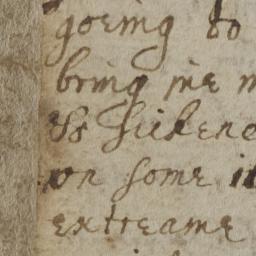 going to
bring me
sickene
on some
extreame